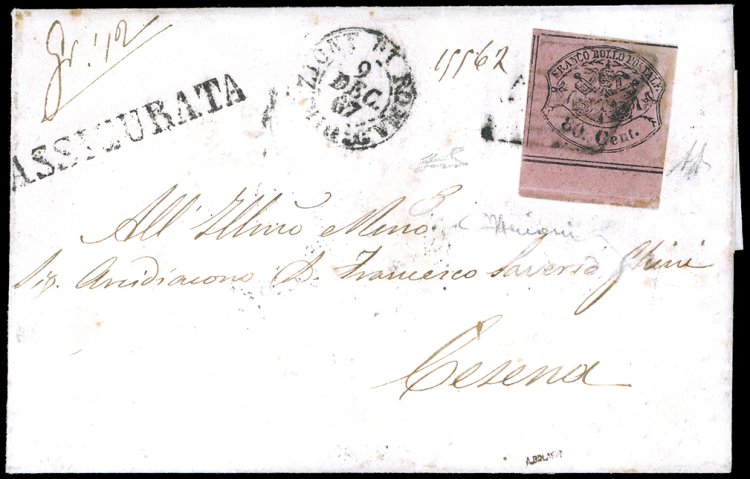 Gr. 12
ASSICURATA
DIREZIONE DI ROMA
9
DEC.
67
15562
FRANCO BOLLO POSTALE
80 Cent.
All' Illmo Mino
Sig. Arcidiacono D. Francesco Saverio Ghini
Cesena
A. BOLAFFI